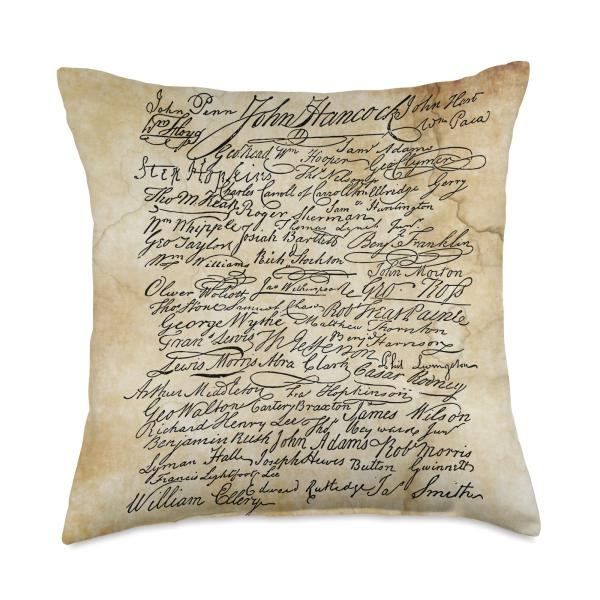 John Penn John Hancock John Hart
Wm Floyd Wm Paca
Geo Read Wm Hooper Saml Adams Geo Clymer
Step Hopkins Ths Nelson jr Gerry
Charles Carroll of Carrollton Elbridge
Tho M:Kean Roger Sherman Saml Huntington
Wm Whipple Thomas Lynch Junr
Geo Taylor Josiah Bartlett Benj Franklin
Wm Williams Richd Stockton John Morton
Oliver Wolcott Jno Witherspoon Geo. Ross
Thos Stone Samuel Chase Robt Treat Paine
George Wythe Matthew Thornton
Frans Lewis Th Jefferson Benj Harrison
Lewis Morris Abra Clark Caesar Rodney Phil Livingston
Arthur Middleton Fra Hopkinson
Geo Walton Carter Braxton James Wilson
Richard Henry Lee Thos Heyward Junr
Benjamin Rush John Adams Robt Morris
Lyman Hall Joseph Hewes Button Gwinnett
Francis Lightfoot Lee
William Ellery Edward Rutledge Jas Smith